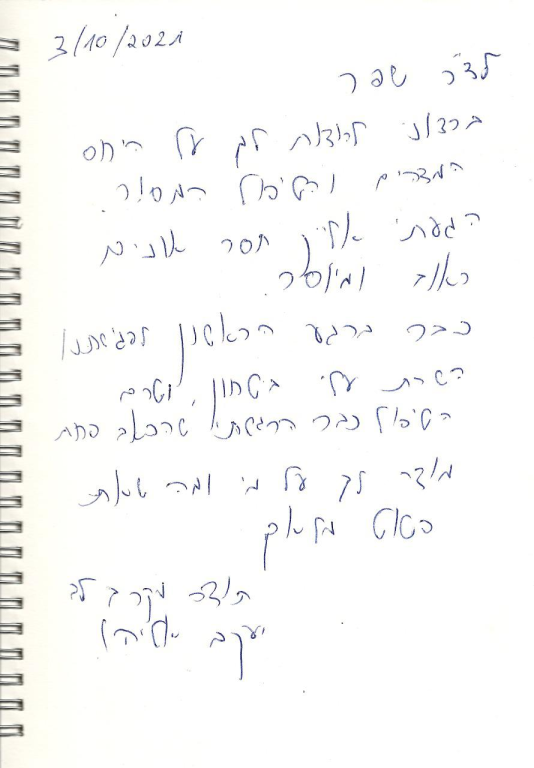 3/10/2021
לד"ר שפר
ברצוני להודות לך על היחס
המדהים והטיפול המסור.
הגעתי אליך חסר אונים
כאוב ומיוסר.
כבר ברגע הראשון לפגישתנו
השרת עלי ביטחון, וטרם
הטיפול כבר הרגשתי שהכאב פחת
מודה לך על מי ומה שאת
פשוט מלאך
תודה מקרב לב
יעקב אליהו